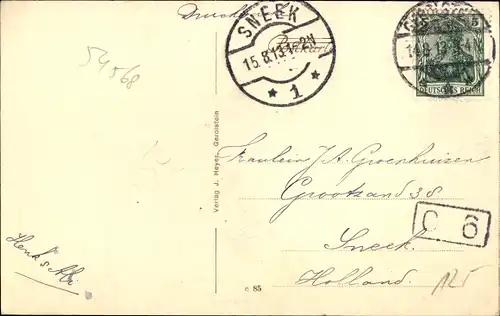 54568
Drucksache
Postkarte
SNEEK
15.8.13.1-2N
* 1 *
14.8.13
5
DEUTSCHES REICH
Verlag J. Heyer, Gerolstein
Fräulein J. A. Groenhuizen
Grootzand 38
Sneek
Holland.
C 6
c 85